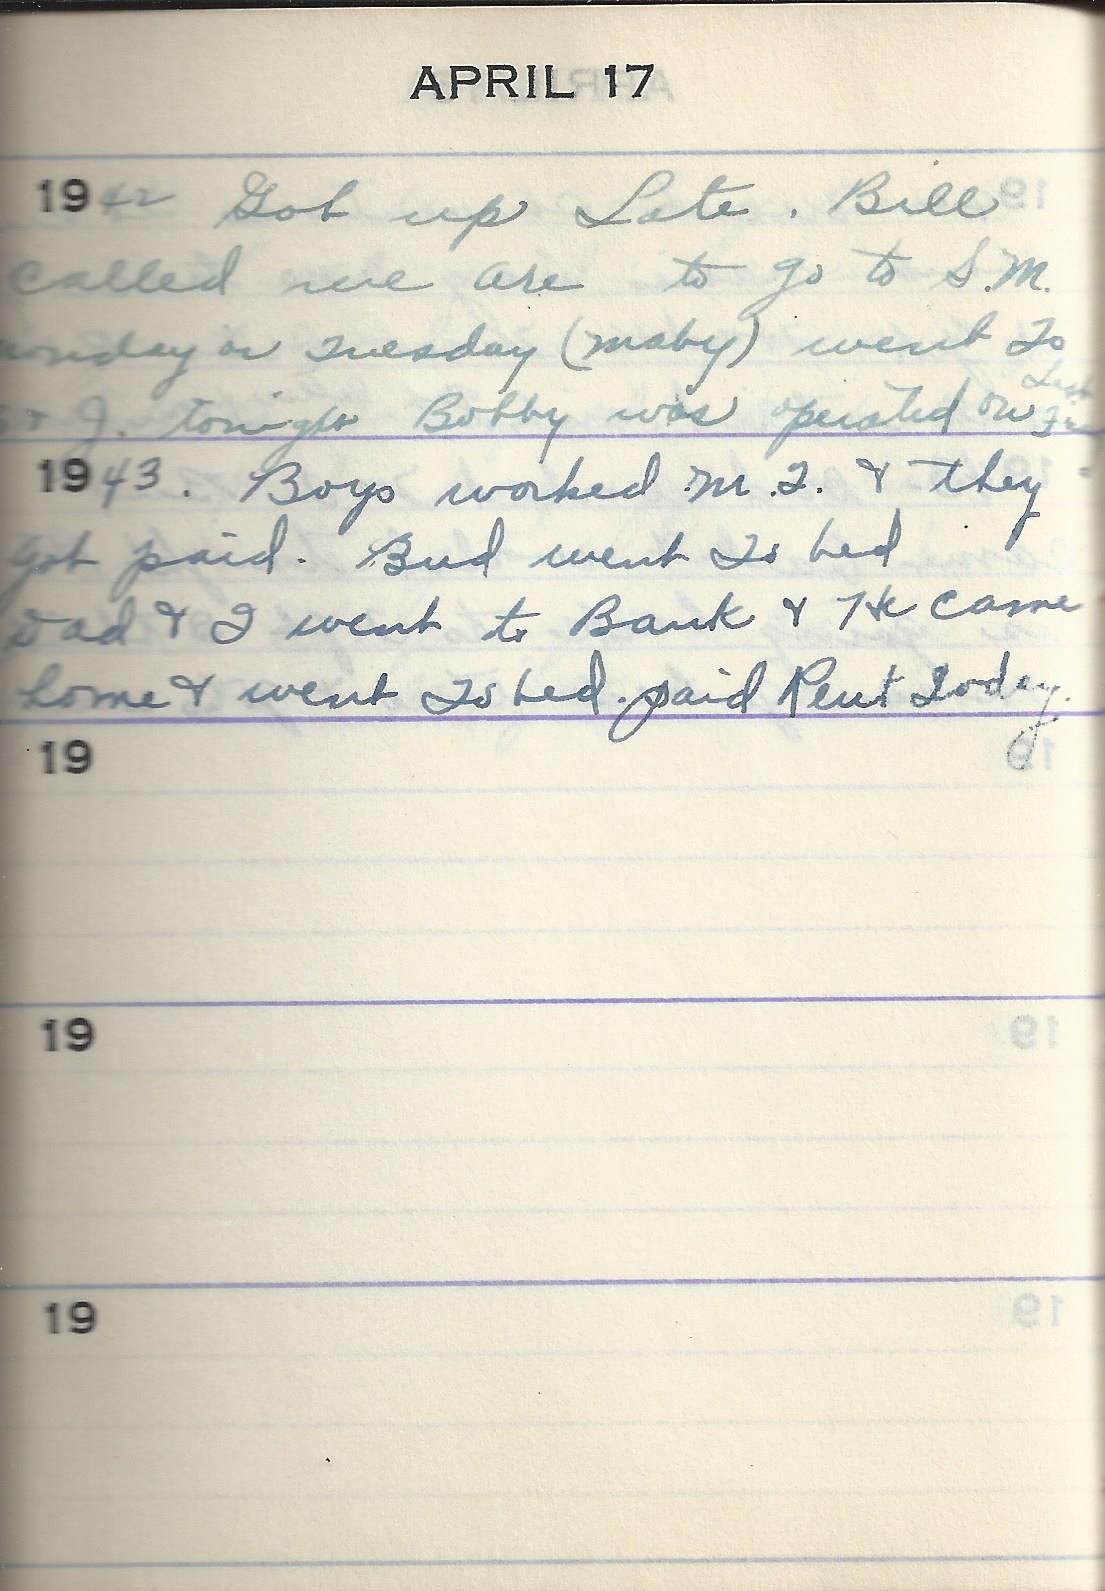 APRIL 17
1942 Got up Late. Bill
called we are to go to S.M.
monday or Tuesday (maby) went To
& J. tonight Bobby was operated on Last
1943. Boys worked M.T. & they
got paid. Bud went To bed
Dad & I went to Bank & He came
home & went To bed. paid Rent Today.
19
19
19